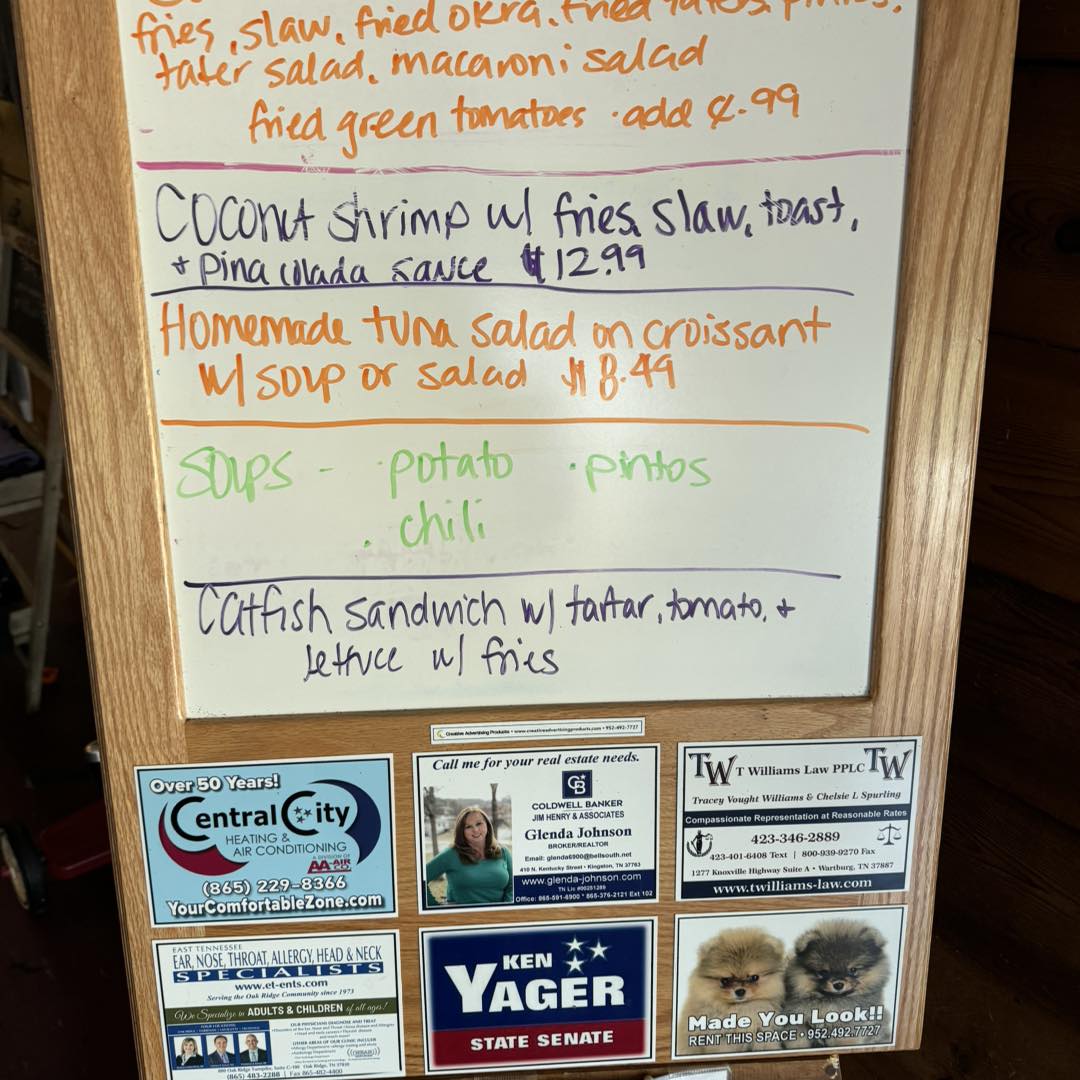 fries, slaw, fried okra, fried taters, pintos,
tater salad, macaroni salad
fried green tomatoes · add ¢.99
Coconut shrimp w/ fries, slaw, toast,
+ pina colada sauce $12.99
Homemade tuna salad on croissant
w/ soup or salad $8.49
Soups - · potato · pintos
· chili
Catfish sandwich w/ tartar, tomato, +
lettuce w/ fries
Creative Advertising Products • www.creativeadvertisingproducts.com • 952-492-7727
Over 50 Years!
Central City
HEATING &
AIR CONDITIONING
A DIVISION OF
AA-AIR
(865) 229-8366
YourComfortableZone.com
Call me for your real estate needs.
CB
COLDWELL BANKER
JIM HENRY & ASSOCIATES
Glenda Johnson
BROKER/REALTOR
Email: glenda6900@bellsouth.net
410 N. Kentucky Street • Kingston, TN 37763
www.glenda-johnson.com
TN Lic #00251289
Office: 865-591-6900 * 865-376-2121 Ext 102
TW T Williams Law PPLC TW
Tracey Vought Williams & Chelsie L Spurling
Compassionate Representation at Reasonable Rates
423-346-2889
423-401-6408 Text | 800-939-9270 Fax
1277 Knoxville Highway Suite A • Wartburg, TN 37887
www.twilliams-law.com
EAST TENNESSEE
EAR, NOSE, THROAT, ALLERGY, HEAD & NECK
SPECIALISTS
www.et-ents.com
Serving the Oak Ridge Community since 1973
We Specialize in ADULTS & CHILDREN of all ages!
OUR PHYSICIANS DIAGNOSE AND TREAT
OTHER AREAS OF OUR CLINIC INCLUDE
(865) 483-2288 | Fax 865-482-4400
KEN
YAGER
STATE SENATE
Made You Look!!
RENT THIS SPACE • 952.492.7727